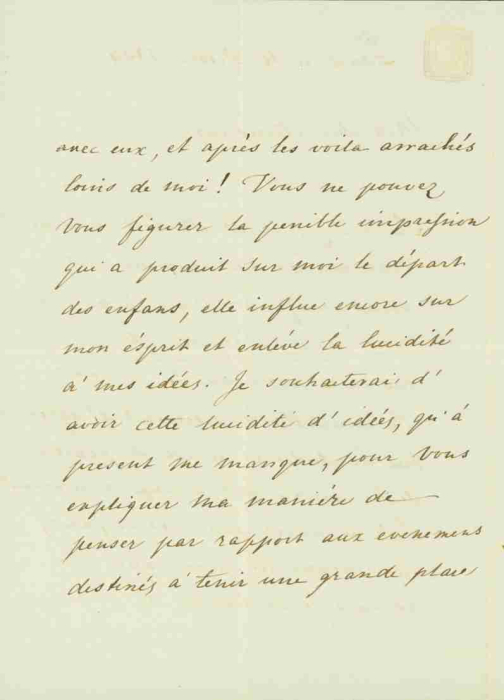 avec eux, et après les voila arrachés
loins de moi! Vous ne pouvez
vous figurer la penible impression
qui a produit sur moi le départ
des enfans, elle influe encore sur
mon ésprit et enléve la lucidité
a' mes idées. Je souhaiterai d'
avoir cette lucidité d'idées, qu'á
present me manque, pour vous
expliquer ma maniére de
penser par rapport aux evenemens
destinés a' tenir une grande place